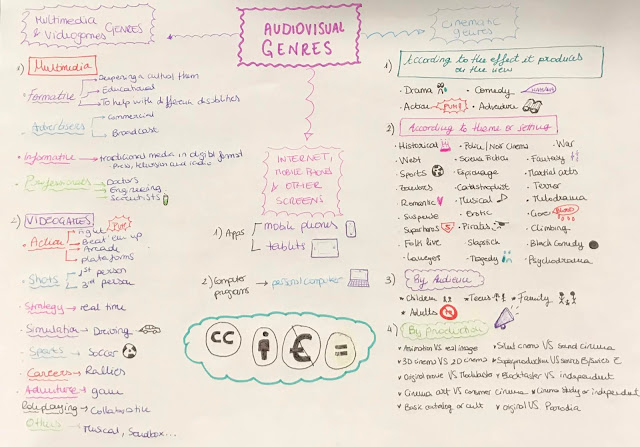 Multimedia & Videogames GENRES
AUDIOVISUAL GENRES
Cinematic genres
1) Multimedia
Formative
Deepening a cultural them
Educational
To help with different disabilities
Advertisers
Commercial
Broadcast
Informative → traditional media in digital format
Press, television and radio
Professionnes
Doctors
Engineering
Scientists
2) VIDEOGAMES
Action
Fight
Beat'em up
Arcade
plataforms
Shots
1st person
3rd person
Strategy → real time
Simulation → Driving
Sports → Soccer
Careers → Rallies
Adventure → game
Roleplaying → Collaborative
Others → Musical, Sandbox...
INTERNET, MOBILE PHONES & OTHER SCREENS
1) Apps
mobile phones
tablets
2) Computer programs → personal computer
CC
€
=
1) According to the effect it produces on the view
· Drama
· Comedy
HAHAHA
· Action
PUM!
· Adventure
2) According to theme or setting
· Historical
· Police / Noir Cinema
· War
· West
· Science Fiction
· Fantasy
· Sports
· Espionage
· Martial arts
· Catastrophist
· Terror
· Romantic
· Musical
· Melodrama
· Suspense
· Erotic
· Gore
BLOOD
· Superheros
· Pirates
· Climbing
· Folk live
· Slapstick
· Black Comedy
· Lawyers
· Tragedy
· Psychodrama
3) By Audience
* Children
* Teens
* Family
* Adults
4) By production
Animation VS real image
Silent cinema VS sound cinema
3D cinema VS 2D cinema
Superproduction VS
Original movie VS
Blockbuster VS. independent
Cinema art VS consumer cinema
Cinema study or independent
Basic or cult
original VS. Parodia